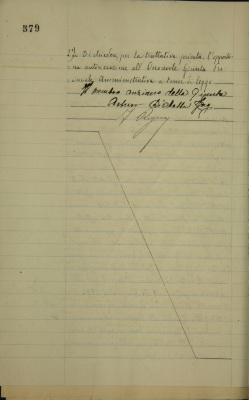 379
2º Di chiedere, per la trattativa privata, l'opportu-
na autorizzazione all'Onorevole Giunta Pro-
vinciale Amministrativa a termini di legge
Il membro anziano della Giunta